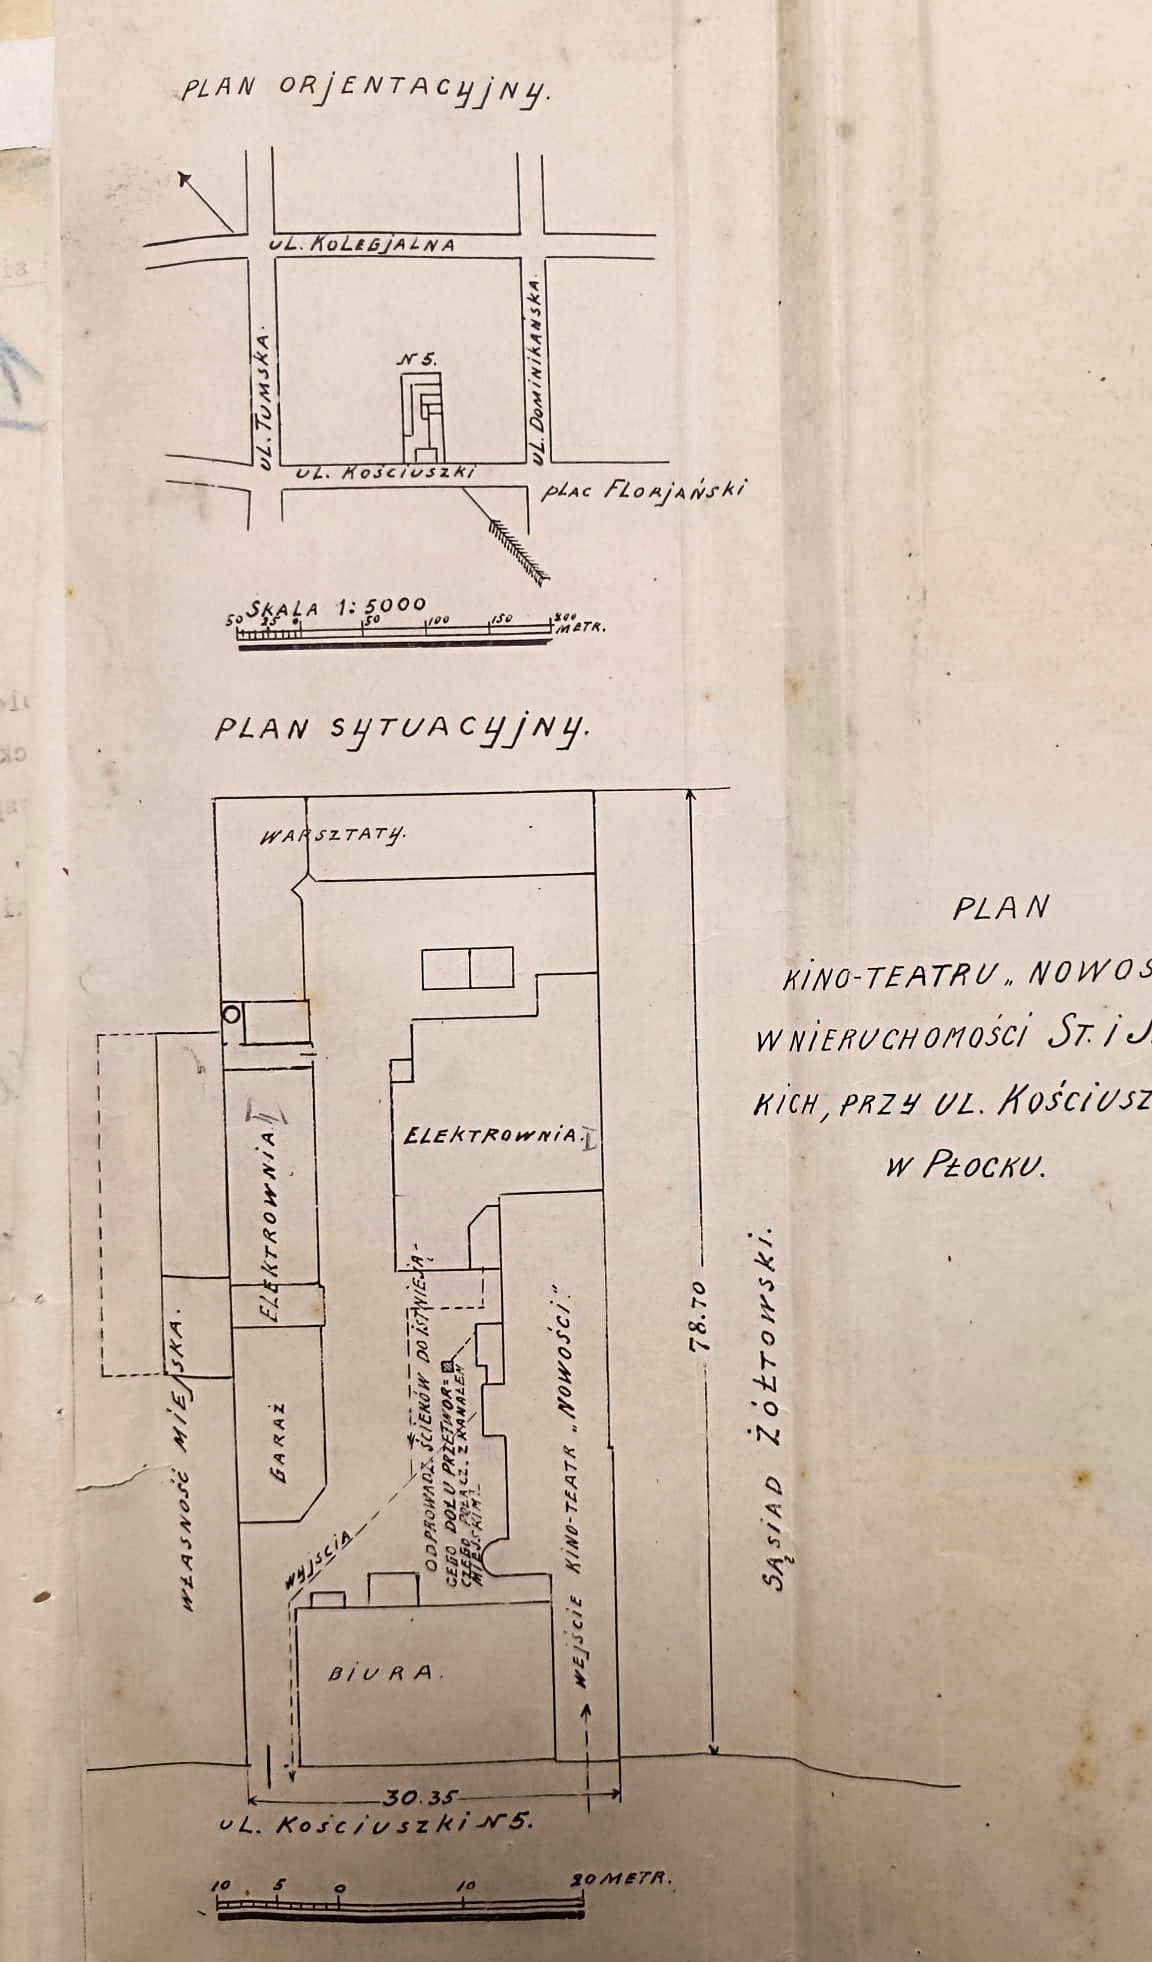 PLAN ORJENTACYJNY.
UL. KOLEGJALNA
UL. TUMSKA.
UL. DOMINIKAŃSKA.
N 5.
UL. KOŚCIUSZKI
PLAC FLORJAŃSKI
SKALA 1:5000
50 25 0 50 100 150 200
METR.
PLAN SYTUACYJNY.
WARSZTATY.
ELEKTROWNIA II
ELEKTROWNIA. I
GARAŻ
WŁASNOŚĆ MIEJSKA.
ODPROWADZ. ŚCIEKÓW DO ISTNIEJĄ-
CEGO DOŁU PRZETWOR=
CZEGO POŁĄCZ. Z KANAŁEM
MIEJSKIM.
WYJŚCIA
BIURA.
WEJŚCIE KINO-TEATR „NOWOŚCI”
78.70
SĄSIAD ŻÓŁTOWSKI.
30.35
UL. KOŚCIUSZKI N 5.
10 5 0 10 20 METR.
PLAN
KINO-TEATRU „NOWOŚ
W NIERUCHOMOŚCI ST. i J.
KICH, PRZY UL. KOŚCIUSZ
W PŁOCKU.